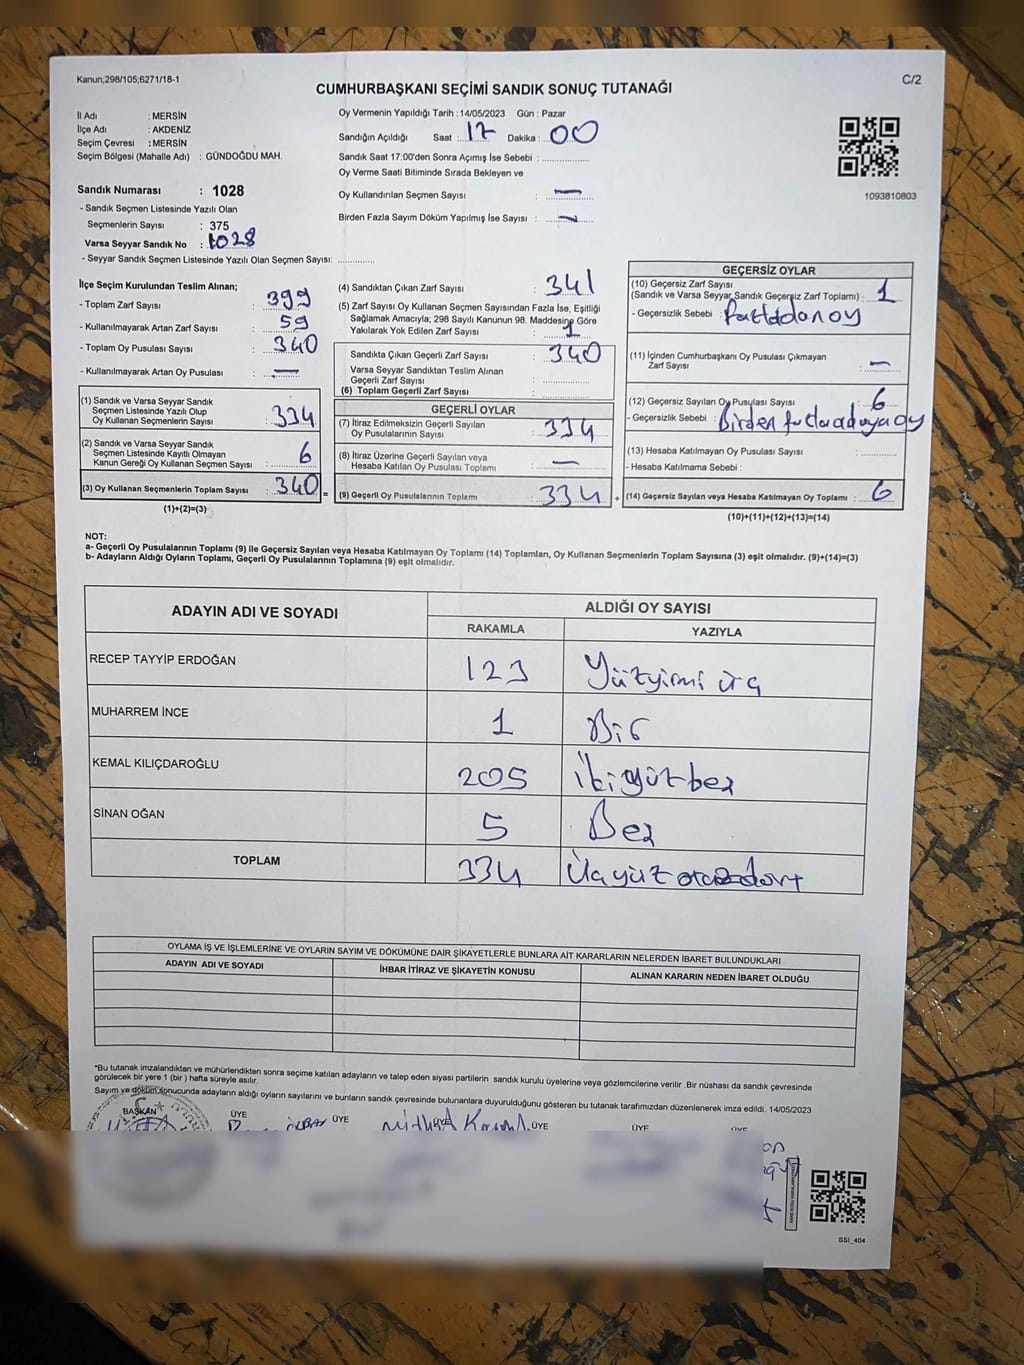 Kanun;298/105;6271/18-1
C/2
CUMHURBAŞKANI SEÇİMİ SANDIK SONUÇ TUTANAĞI
İl Adı : MERSİN
İlçe Adı : AKDENİZ
Seçim Çevresi : MERSİN
Seçim Bölgesi (Mahalle Adı) : GÜNDOĞDU MAH.
Oy Vermenin Yapıldığı Tarih : 14/05/2023 Gün : Pazar
Sandığın Açıldığı Saat : 17 Dakika : 00
Sandık Saat 17:00'den Sonra Açımış İse Sebebi :
Oy Verme Saati Bitiminde Sırada Bekleyen ve
Oy Kullandırılan Seçmen Sayısı : —
Birden Fazla Sayım Döküm Yapılmış İse Sayısı : —
1093810803
Sandık Numarası : 1028
- Sandık Seçmen Listesinde Yazılı Olan
Seçmenlerin Sayısı : 375
Varsa Seyyar Sandık No : 1028
- Seyyar Sandık Seçmen Listesinde Yazılı Olan Seçmen Sayısı:
İlçe Seçim Kurulundan Teslim Alınan;
- Toplam Zarf Sayısı : 399
- Kullanılmayarak Artan Zarf Sayısı : 59
- Toplam Oy Pusulası Sayısı : 340
- Kullanılmayarak Artan Oy Pusulası : —
(1) Sandık ve Varsa Seyyar Sandık
Seçmen Listesinde Yazılı Olup
Oy Kullanan Seçmenlerin Sayısı : 334
(2) Sandık ve Varsa Seyyar Sandık
Seçmen Listesinde Kayıtlı Olmayan
Kanun Gereği Oy Kullanan Seçmen Sayısı : 6
(3) Oy Kullanan Seçmenlerin Toplam Sayısı : 340
(1)+(2)=(3)
(4) Sandıktan Çıkan Zarf Sayısı : 341
(5) Zarf Sayısı Oy Kullanan Seçmen Sayısından Fazla İse, Eşitliği
Sağlamak Amacıyla; 298 Sayılı Kanunun 98. Maddesine Göre
Yakılarak Yok Edilen Zarf Sayısı : 1
Sandıkta Çıkan Geçerli Zarf Sayısı : 340
Varsa Seyyar Sandıktan Teslim Alınan
Geçerli Zarf Sayısı :
(6) Toplam Geçerli Zarf Sayısı :
GEÇERLİ OYLAR
(7) İtiraz Edilmeksizin Geçerli Sayılan
Oy Pusulalarının Sayısı : 334
(8) İtiraz Üzerine Geçerli Sayılan veya
Hesaba Katılan Oy Pusulası Toplamı : —
= (9) Geçerli Oy Pusulalarının Toplamı : 334 +
GEÇERSİZ OYLAR
(10) Geçersiz Zarf Sayısı
(Sandık ve Varsa Seyyar Sandık Geçersiz Zarf Toplamı) : 1
- Geçersizlik Sebebi :
(11) İçinden Cumhurbaşkanı Oy Pusulası Çıkmayan
Zarf Sayısı : —
(12) Geçersiz Sayılan Oy Pusulası Sayısı : 6
- Geçersizlik Sebebi : Birden
(13) Hesaba Katılmayan Oy Pusulası Sayısı :
- Hesaba Katılmama Sebebi :
(14) Geçersiz Sayılan veya Hesaba Katılmayan Oy Toplamı : 6
(10)+(11)+(12)+(13)=(14)
NOT:
a- Geçerli Oy Pusulalarının Toplamı (9) ile Geçersiz Sayılan veya Hesaba Katılmayan Oy Toplamı (14) Toplamları, Oy Kullanan Seçmenlerin Toplam Sayısına (3) eşit olmalıdır. (9)+(14)=(3)
b- Adayların Aldığı Oyların Toplamı, Geçerli Oy Pusulalarının Toplamına (9) eşit olmalıdır.
ADAYIN ADI VE SOYADI ALDIĞI OY SAYISI
RAKAMLA YAZIYLA
RECEP TAYYİP ERDOĞAN 123 Yüzyirmi üç
MUHARREM İNCE 1 Bir
KEMAL KILIÇDAROĞLU 205 İkiyüzbeş
SİNAN OĞAN 5 Beş
TOPLAM 334 Üçyüz otuzdört
OYLAMA İŞ VE İŞLEMLERİNE VE OYLARIN SAYIM VE DÖKÜMÜNE DAİR ŞİKAYETLERLE BUNLARA AİT KARARLARIN NELERDEN İBARET BULUNDUKLARI
ADAYIN ADI VE SOYADI İHBAR İTİRAZ VE ŞİKAYETİN KONUSU ALINAN KARARIN NEDEN İBARET OLDUĞU
*Bu tutanak imzalandıktan ve mühürlendikten sonra seçime katılan adayların ve talep eden siyasi partilerin sandık kurulu üyelerine veya gözlemcilerine verilir .Bir nüshası da sandık çevresinde
görülecek bir yere 1 (bir ) hafta süreyle asılır.
Sayım ve döküm sonucunda adayların aldığı oyların sayılarını ve bunların sandık çevresinde bulunanlara duyurulduğunu gösteren bu tutanak tarafımızdan düzenlenerek imza edildi. 14/05/2023
BAŞKAN ÜYE ÜYE ÜYE ÜYE ÜYE
SSI_404